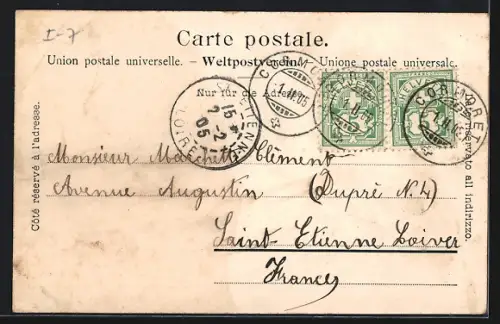 I-7
Carte postale.
Union postale universelle. – Weltpostverein. – Unione postale universale.
Nur für die Adresse.
CORMORET
1.II.05
CORMORET
1.II.05
15
2-2
05
Côté réservé à l'adresse.
Monsieur Marchetti Clément
Avenue Augustin (Dupré N. 4)
Saint-Etienne Loire
France
riservato all indirizzo.